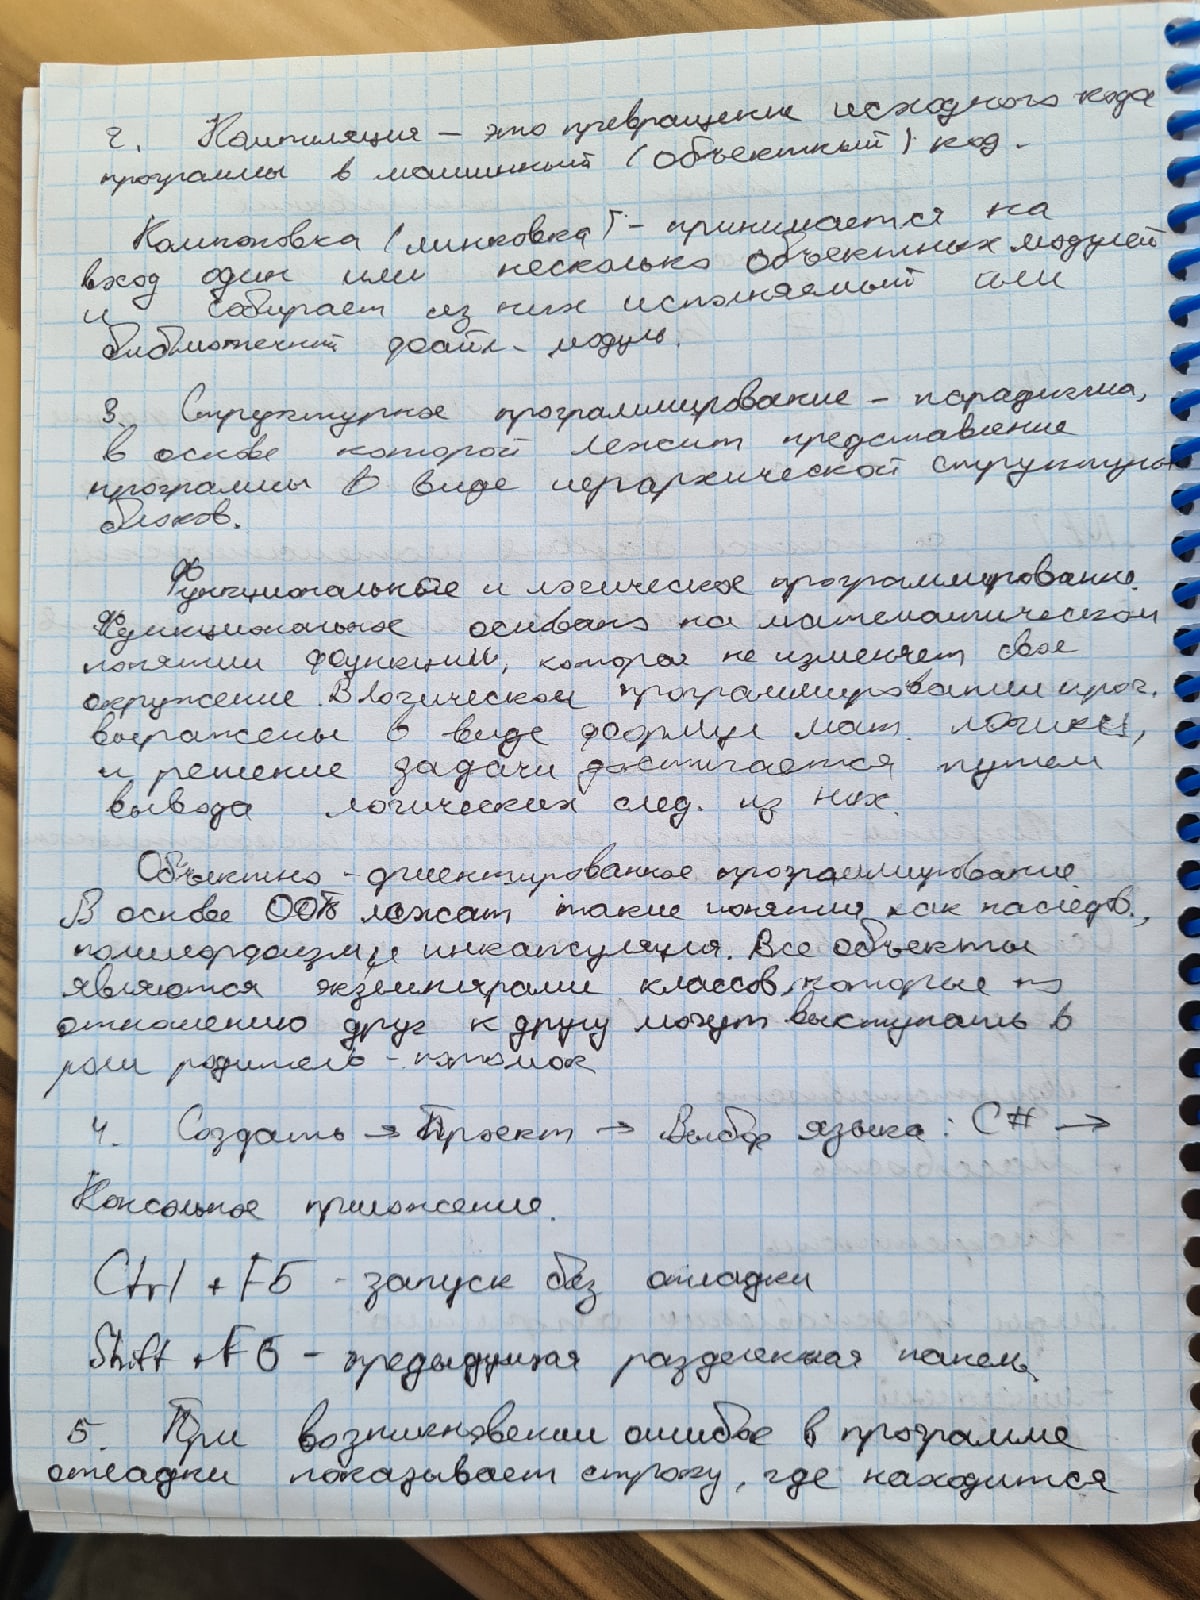 2. Компиляция – это превращение исходного кода
программы в машинный (объектный) код.
Компоновка (линковка) – принимается на
вход один или несколько объектных модулей
и собирает из них исполняемый или
библиотечный файл-модуль.
3. Структурное программирование – парадигма,
в основе которой лежит представление
программы в виде иерархической структуры
блоков.
Функциональное и логическое программирование.
Функциональное основано на математическом
понятии функции, которая не изменяет свое
окружение. В логическом программировании прог.
выражены в виде формул мат. логики,
и решение задачи достигается путем
вывода логических след. из них.
Объектно-ориентированное программирование
В основе ООП лежат такие понятия как наследов.,
полиморфизм и инкапсуляция. Все объекты
являются экземплярами классов, которые по
отношению друг к другу могут выступать в
роли родитель-потомок
4. Создать → Проект → Выбор языка: C# →
Консольное приложение.
Ctrl + F5 - запуск без отладки
Shift + F6 – предыдущая разделенная панель
5. При возникновении ошибок в программе
отладки показывает строку, где находится